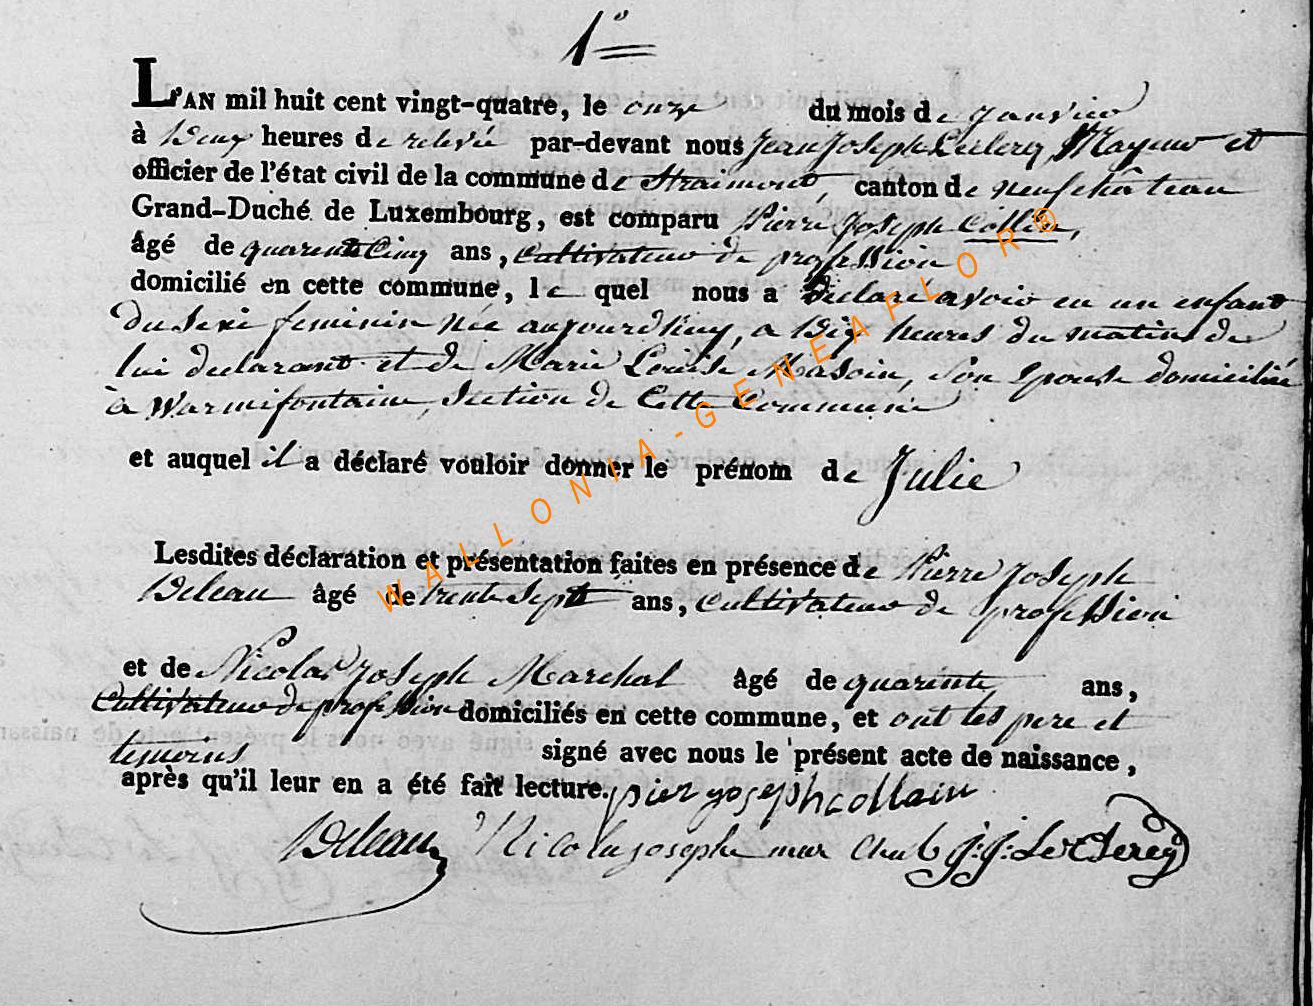 1°
L'AN mil huit cent vingt-quatre, le onze du mois de janvier
à Deux heures de relevée par-devant nous Jean Joseph Leclerq, Mayeur et
officier de l'état civil de la commune de Straimont, canton de neufchâteau
Grand-Duché de Luxembourg, est comparu Pierre Joseph Collin,
âgé de quarente Cinq ans, cultivateur de profession
domicilié en cette commune, le quel nous a Declaré avoir eu un enfant
du sexe feminin née aujourdhuy, a Dix heures du matin de
lui declarant et de Marie Louise Masoin, son epouse domiciliée
à Warmifontaine, Section de Cette Commune
et auquel il a déclaré vouloir donner le prénom de Julie
Lesdites déclaration et présentation faites en présence de Pierre Joseph
Deleau âgé de trente Sept ans, cultivateur de profession
et de Nicolas Joseph Marchal âgé de quarente ans,
Cultivateur de profession domiciliés en cette commune, et ont les pere et
temoins signé avec nous le présent acte de naissance,
après qu'il leur en a été fait lecture. pier joseph collain
Deleau Nicolas joseph mar chal J. J. Le Clereq
WALLONIA-GENEAFLOR®